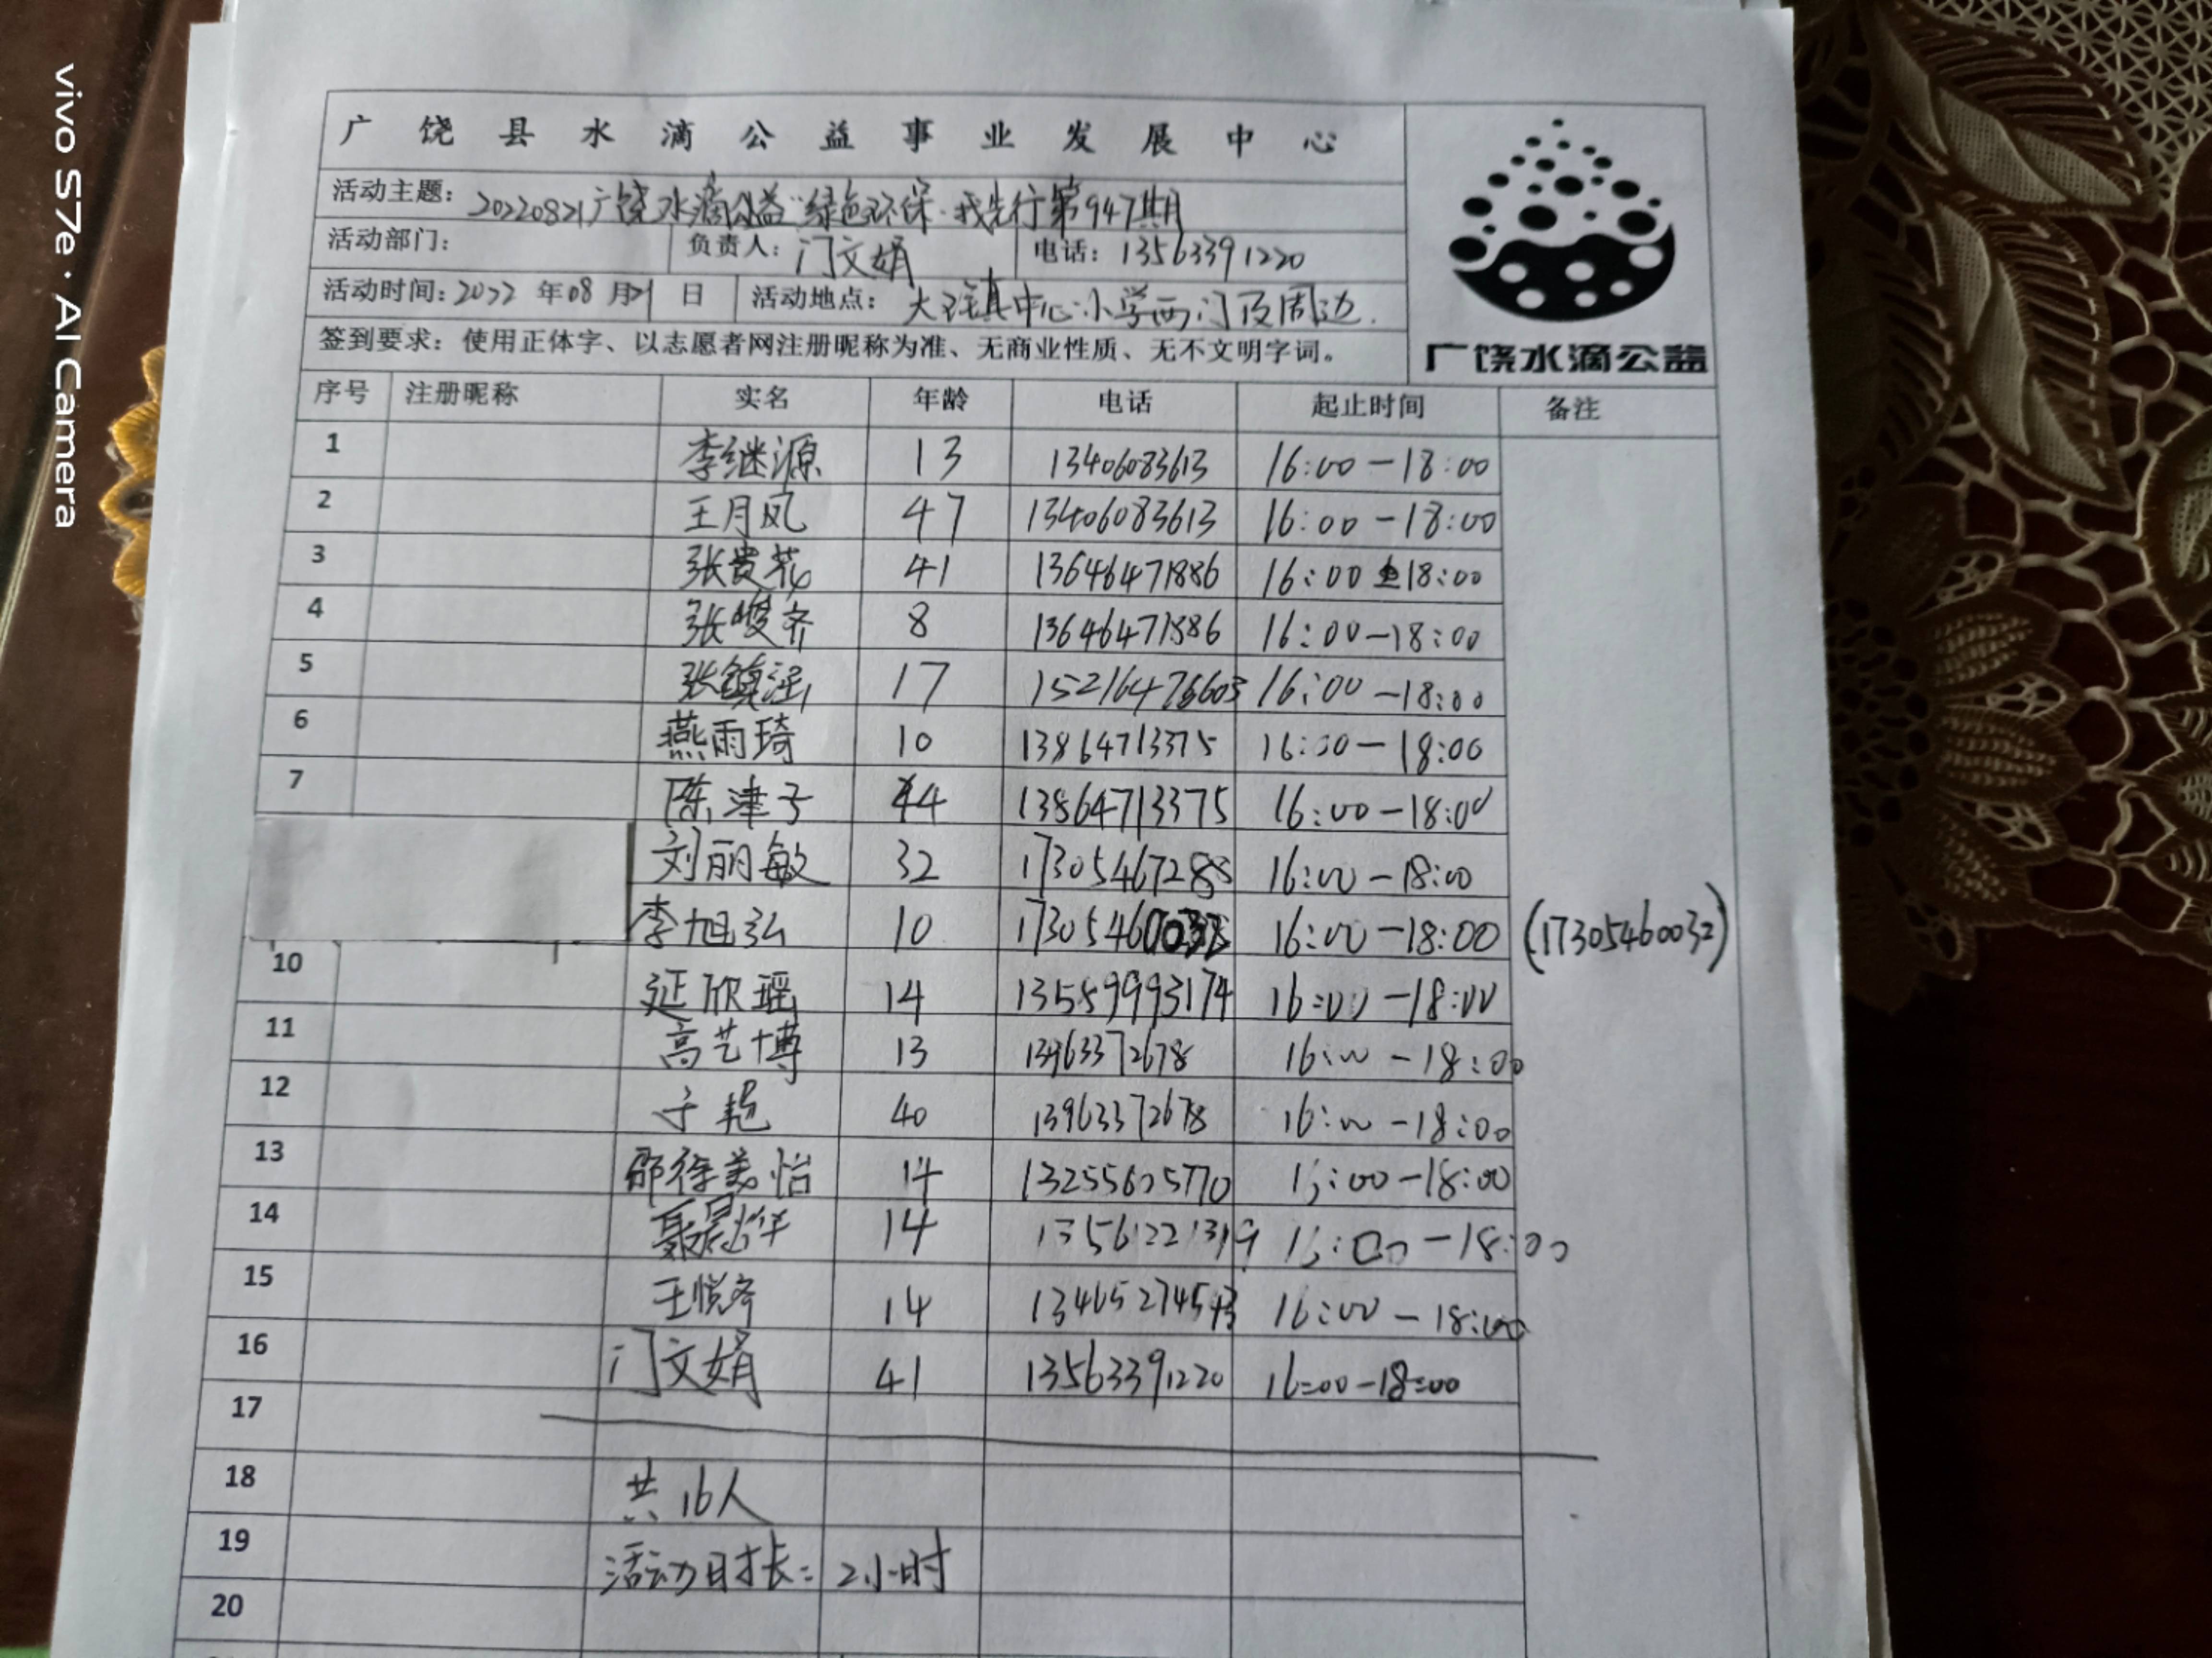 广饶县水滴公益事业发展中心
活动主题：20220821广饶水滴公益"绿色环保·我先行第947期
活动部门： 负责人：门文娟 电话：13563391220
活动时间：2022 年 08 月 21 日 活动地点：大王镇中心小学西门及周边.
签到要求：使用正体字、以志愿者网注册昵称为准、无商业性质、无不文明字词。
广饶水滴公益
序号 注册昵称 实名 年龄 电话 起止时间 备注
1 李继源 13 13406083613 16:00-18:00
2 王月凤 47 13406083613 16:00-18:00
3 张贵花 41 13646471886 16:00 18:00
4 张峻齐 8 13646471886 16:00-18:00
5 张镇涵 17 16:00-18:00
6 燕雨琦 10 13864713375 16:00-18:00
7 陈津子 44 13864713375 16:00-18:00
刘丽敏 32 17305467288 16:00-18:00
李旭弘 10 16:00-18:00 (17305460032)
10 延欣瑶 14 13589993174 16:00-18:00
11 高艺博 13 13963372678 16:00-18:00
12 于艳 40 13963372678 16:00-18:00
13 邵徐美怡 14 13255605770 16:00-18:00
14 14 13561221319 16:00-18:00
15 王悦齐 14 16:00-18:00
16 门文娟 41 13563391220 16:00-18:00
17
18 共16人
19 活动时长：2小时
20
vivo S7e · AI Camera